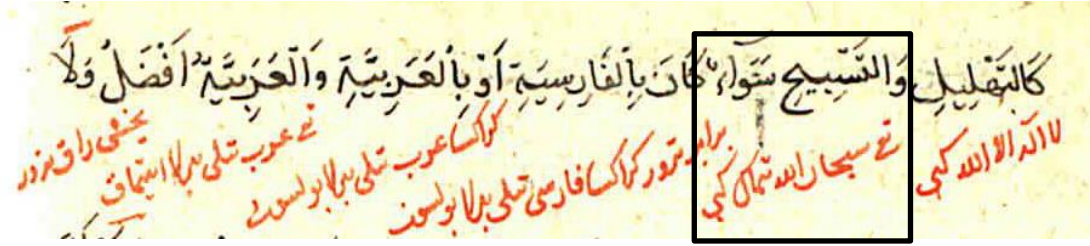 كَالتَهْلِيلِ وَالتَّسْبِيحِ سَوَآءٌ كَانَ بِالْفَارِسِيَّةِ اَوْ بِالْعَرَبِيَّةِ وَالْعَرَبِيَّةُ اَفْضَلُ وَلَا
لا اله الا الله كبى تى سبحان الله تماك كبى برابر تورور كراكسا فارسى تلى برلا بولسون كراكسا عرب تلى برلا بولسون تى عرب تلى برلا ايتماق يخشى راق تورور